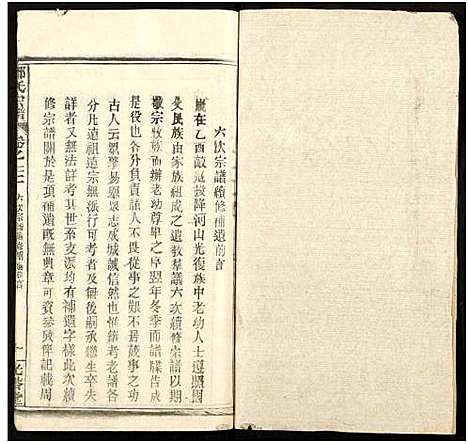 六次宗譜續修補遺前言
歲在乙酉敵寇投降河山光復族中老幼人士遵照國
父民族由家族組成之遺教羣議六次續修宗譜以期
敬宗收族而辦老幼尊卑之序翌年冬季而譜牒告成
是役之負責諸人不畏從事之艱不畏歲事之功
古人云眾擎易舉眾志成城誠信然也惟錯考老譜各
分凡遠祖遠宗無派行者及無後嗣承繼生卒失
詳者又無法詳者其世系支派均有補遺字樣此次續
修宗譜關於是項補遺既無典章可資參攷俾記載周
氏宗譜
卷之三
六次宗譜續修補遺前言
一
光裕堂